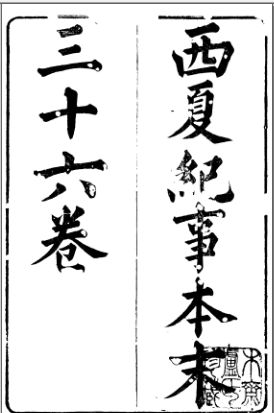 西夏紀事本末
三十六卷